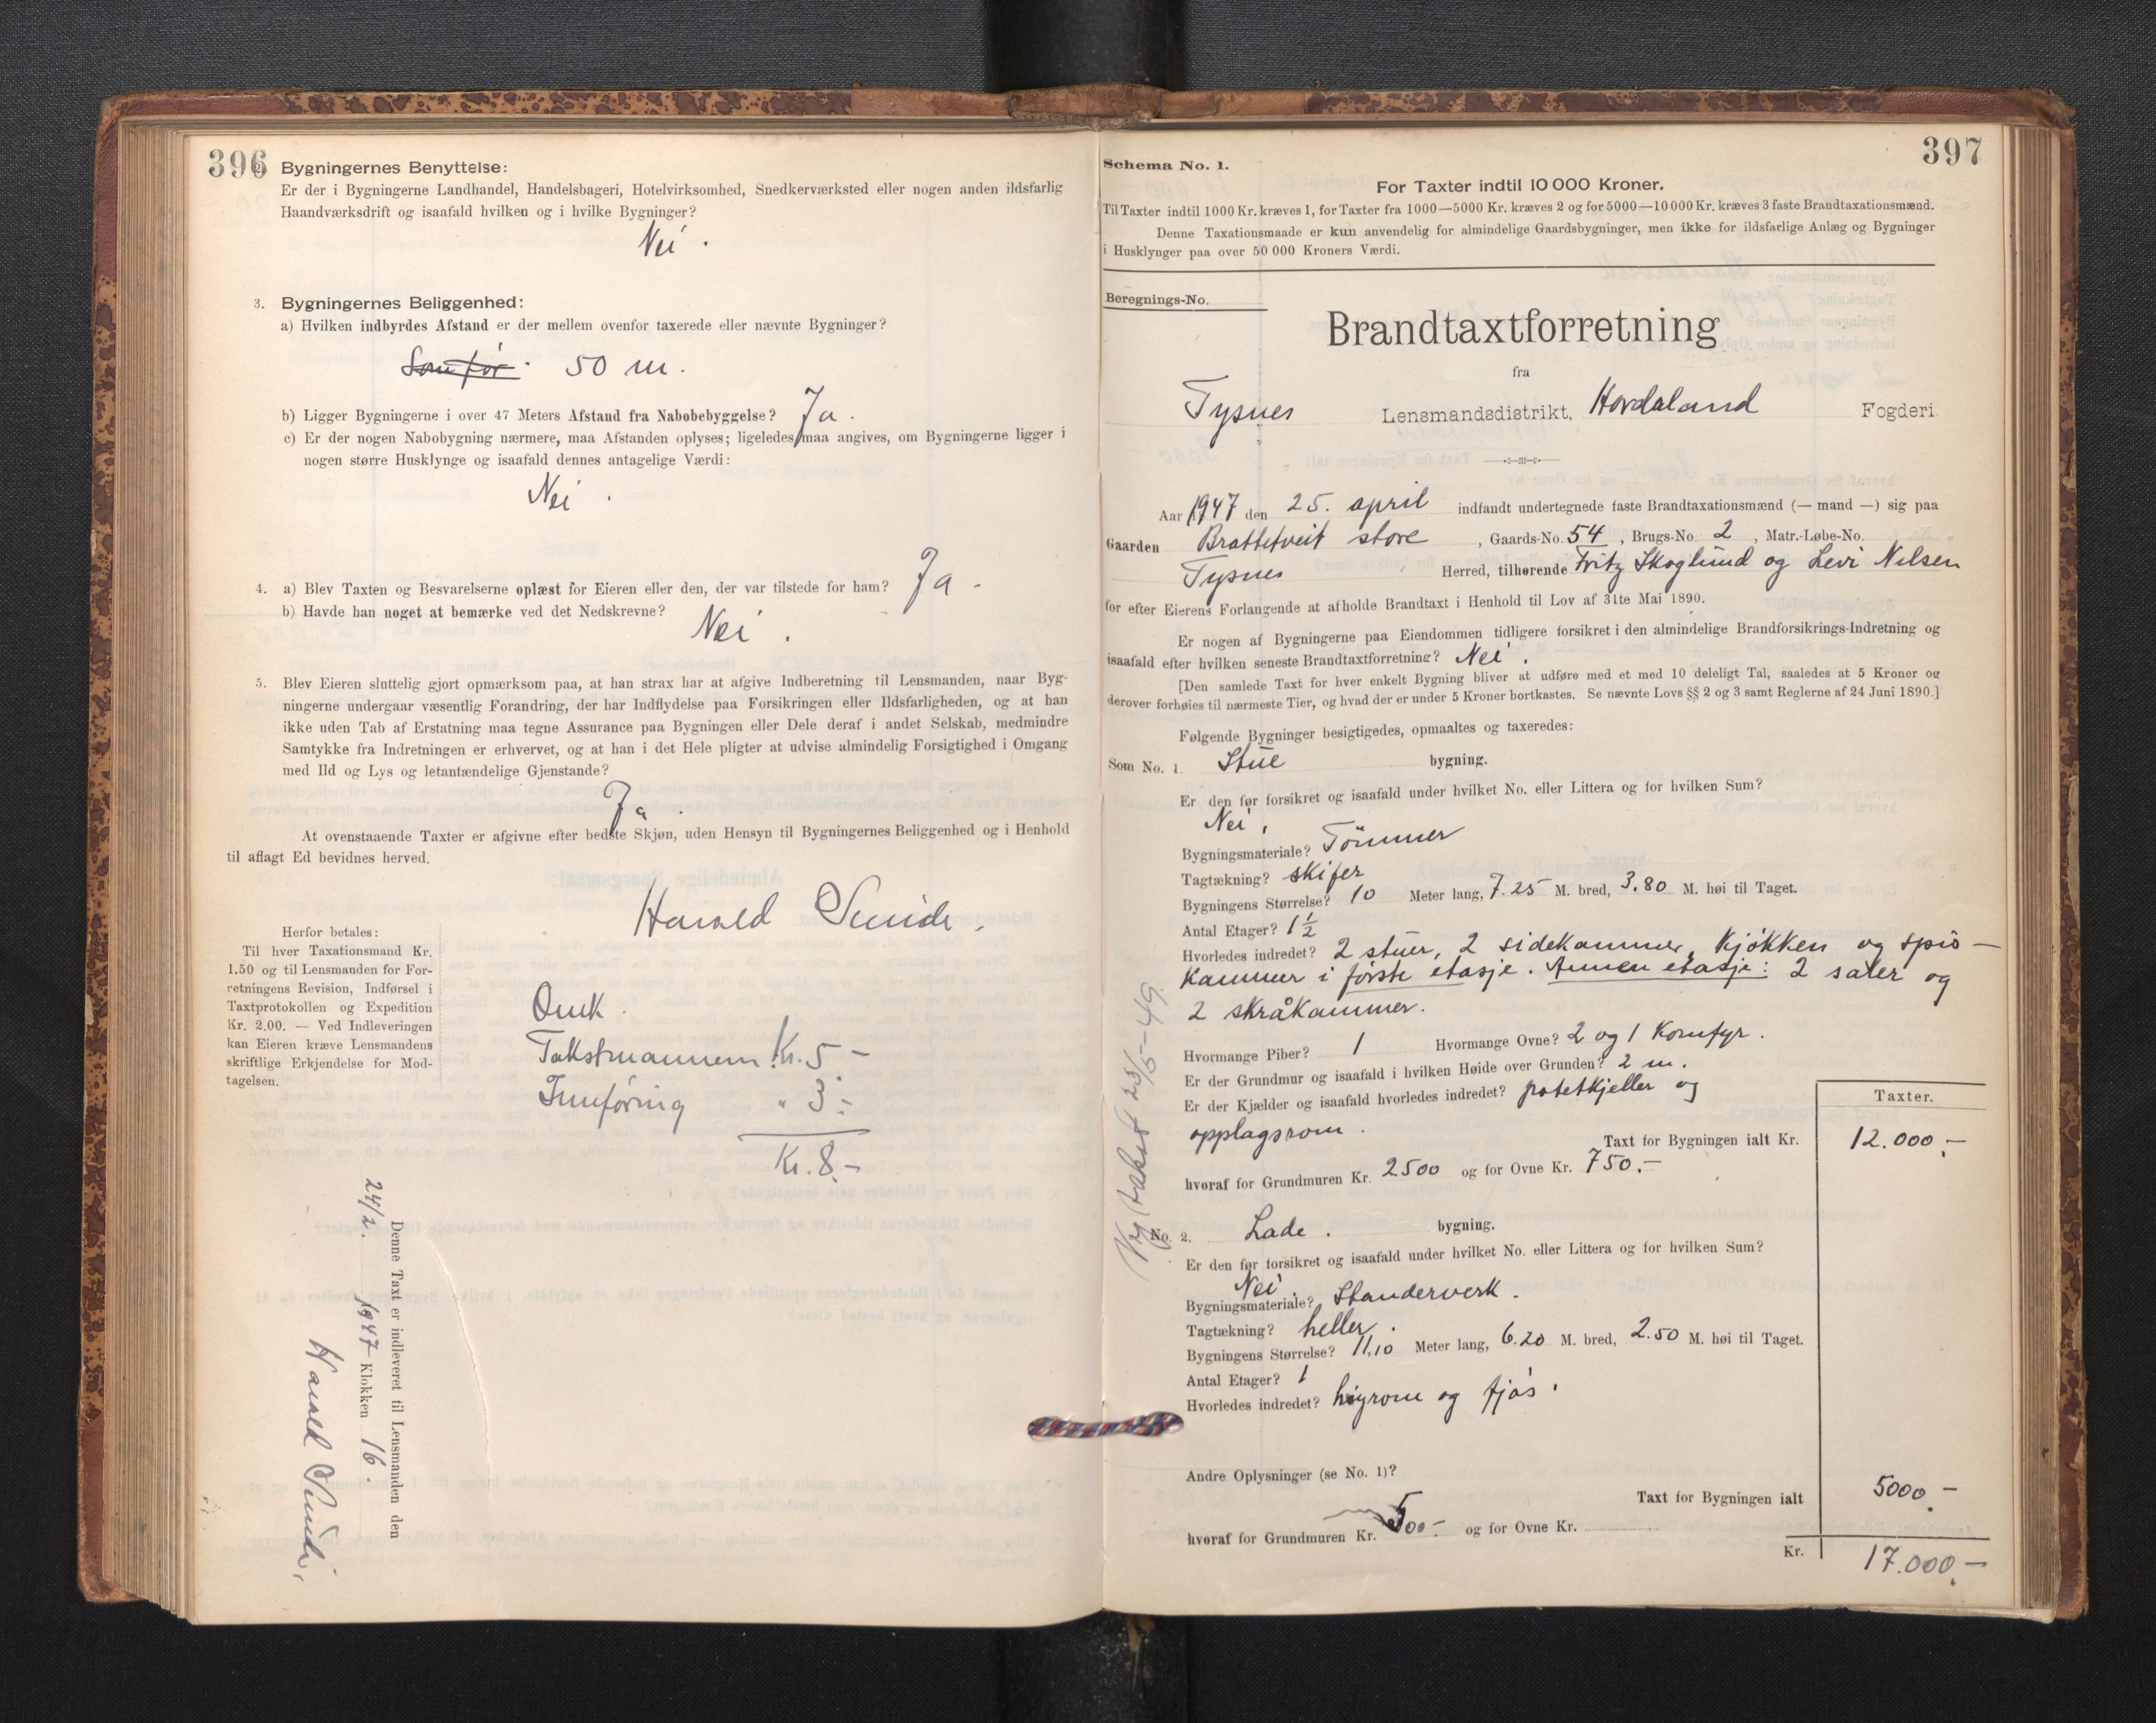 396
Bygningernes Benyttelse:
Er der i Bygningerne Landhandel, Handelsbageri, Hotelvirksomhed, Snedkerværksted eller nogen anden ildsfarlig
Haandværksdrift og isaafald hvilken og i hvilke Bygninger?
Nei.
3. Bygningernes Beliggenhed:
a) Hvilken indbyrdes Afstand er der mellem ovenfor taxerede eller nævnte Bygninger?
Som før. 50 m.
b) Ligger Bygningerne i over 47 Meters Afstand fra Nabobebyggelse? Ja.
c) Er der nogen Nabobygning nærmere, maa Afstanden oplyses; ligeledes maa angives, om Bygningerne ligger i
nogen større Husklynge og isaafald dennes antagelige Værdi:
Nei.
4. a) Blev Taxten og Besvarelserne oplæst for Eieren eller den, der var tilstede for ham? Ja -
b) Havde han noget at bemærke ved det Nedskrevne? Nei.
5. Blev Eieren sluttelig gjort opmærksom paa, at han strax har at afgive Indberetning til Lensmanden, naar Byg-
ningerne undergaar væsentlig Forandring, der har Indflydelse paa Forsikringen eller Ildsfarligheden, og at han
ikke uden Tab af Erstatning maa tegne Assurance paa Bygningen eller Dele deraf i andet Selskab, medmindre
Samtykke fra Indretningen er erhvervet, og at han i det Hele pligter at udvise almindelig Forsigtighed i Omgang
med Ild og Lys og letantændelige Gjenstande?
Ja.
At ovenstaaende Taxter er afgivne efter bedste Skjøn, uden Hensyn til Bygningernes Beliggenhed og i Henhold
til aflagt Ed bevidnes herved.
Harald Sunde.
Herfor betales:
Til hver Taxationsmand Kr.
1.50 og til Lensmanden for For-
retningens Revision, Indførsel i
Taxtprotokollen og Expedition
Kr. 2.00. — Ved Indleveringen
kan Eieren kræve Lensmandens
skriftlige Erkjendelse for Mod-
tagelsen.
Omk.
Takstmannen Kr. 5 -
Innføring " 3 -
Kr. 8.-
Denne Taxt er indleveret til Lensmanden den
24/2. 1947 Klokken 16.
Harald Sunde.
397
Schema No. 1.
For Taxter indtil 10 000 Kroner.
Til Taxter indtil 1000 Kr. kræves 1, for Taxter fra 1000—5000 Kr. kræves 2 og for 5000—10 000 Kr. kræves 3 faste Brandtaxationsmænd.
Denne Taxationsmaade er kun anvendelig for almindelige Gaardsbygninger, men ikke for ildsfarlige Anlæg og Bygninger
i Husklynger paa over 50 000 Kroners Værdi.
Beregnings-No.
Brandtaxtforretning
fra
Tysnes Lensmandsdistrikt, Hordaland Fogderi
Aar 1947 den 25. april indfandt undertegnede faste Brandtaxationsmænd (— mand —) sig paa
Gaarden Brattetveit store, Gaards-No. 54, Brugs-No. 2, Matr.-Løbe-No.
Tysnes Herred, tilhørende Fritz Skoglund og Levi Nilsen
for efter Eierens Forlangende at afholde Brandtaxt i Henhold til Lov af 31te Mai 1890.
Er nogen af Bygningerne paa Eiendommen tidligere forsikret i den almindelige Brandforsikrings-Indretning og
isaafald efter hvilken seneste Brandtaxtforretning? Nei.
[Den samlede Taxt for hver enkelt Bygning bliver at udføre med et med 10 deleligt Tal, saaledes at 5 Kroner og
derover forhøies til nærmeste Tier, og hvad der er under 5 Kroner bortkastes. Se nævnte Lovs §§ 2 og 3 samt Reglerne af 24 Juni 1890.]
Følgende Bygninger besigtigedes, opmaaltes og taxeredes:
Som No. 1. Stue bygning.
Er den før forsikret og isaafald under hvilket No. eller Littera og for hvilken Sum?
Nei.
Bygningsmateriale? Tömmer
Tagtækning? skifer
Bygningens Størrelse? 10 Meter lang, 7.25 M. bred, 3.80 M. høi til Taget.
Antal Etager? 1 1/2
Hvorledes indredet? 2 stuer, 2 sidekammer, kjøkken og spis-
kammer i første etasje. Annen etasje: 2 saler og
2 skråkammer.
Hvormange Piber? 1 Hvormange Ovne? 2 og 1 Komfyr.
Er der Grundmur og isaafald i hvilken Høide over Grunden? 2 m.
Er der Kjælder og isaafald hvorledes indredet? potetkjeller og
opplagsrom.
Taxter.
Taxt for Bygningen ialt Kr. 12.000.-
hvoraf for Grundmuren Kr. 2500 og for Ovne Kr. 750.-
Ny takst 23/5-49.
No. 2. Lade. bygning.
Er den før forsikret og isaafald under hvilket No. eller Littera og for hvilken Sum?
Nei.
Bygningsmateriale? Standerverk.
Tagtækning? heller.
Bygningens Størrelse? 11,10 Meter lang, 6.20 M. bred, 2.50 M. høi til Taget.
Antal Etager? 1
Hvorledes indredet? høyrom og fjøs.
Andre Oplysninger (se No. 1)?
Taxt for Bygningen ialt 5000.-
hvoraf for Grundmuren Kr. 500.- og for Ovne Kr.
Kr. 17.000.-